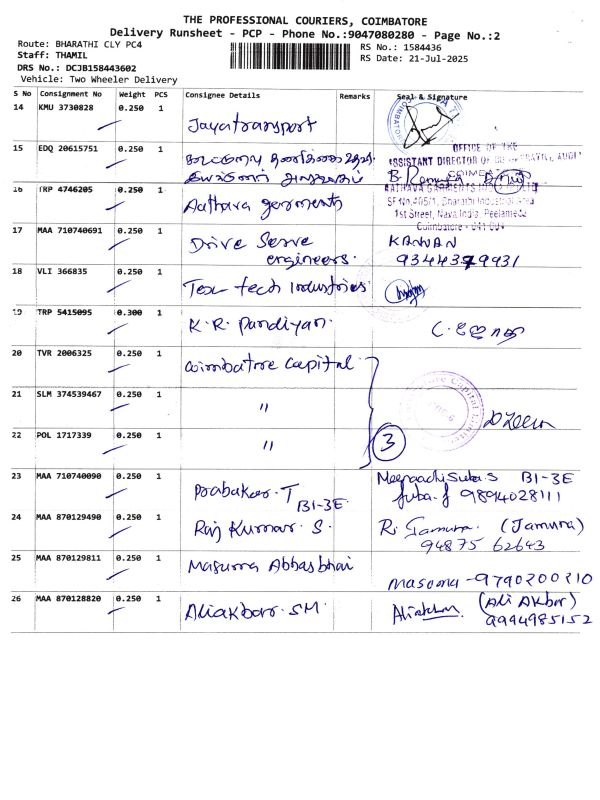 THE PROFESSIONAL COURIERS, COIMBATORE
Delivery Runsheet - PCP - Phone No.:9047080280 - Page No.:2
Route: BHARATHI CLY PC4
RS No.: 1584436
Staff: THAMIL
RS Date: 21-Jul-2025
DRS No.: DCJB158443602
Vehicle: Two Wheeler Delivery
S No Consignment No Weight PCS Consignee Details Remarks Seal & Signature
14 KMU 3730828 0.250 1 Jayatransport
15 EDQ 20615751 0.250 1
OFFICE OF THE
ASSISTANT DIRECTOR OF
16 TRP 4746205 0.250 1 Aathava garments
AATHAVA GARMENTS
SF No, 405/1, Bharathi Industrial Area
1st Street, Nava India, Peelamedu
Coimbatore - 641 004
17 MAA 710740691 0.250 1 Drive Serve engineers. KANNAN
9344379931
18 VLI 366835 0.250 1 Tex tech Industries
19 TRP 5415095 0.300 1 K.R. Pandiyan.
20 TVR 2006325 0.250 1 Coimbatore Capital
21 SLM 374539467 0.250 1 "
22 POL 1717339 0.250 1 "
3
23 MAA 710740090 0.250 1 Prabakar. T
B1-3E
Meenaachi Suba.S B1-3E
9894028111
24 MAA 870129490 0.250 1 Raj Kumar. S. R. Jamuna. (Jamuna)
94875 62643
25 MAA 870129811 0.250 1 Masuma Abbasbhai
Masuma - 9790200210
26 MAA 870128820 0.250 1 Aliakbar. SM. Aliakbar (Ali Akbar)
9994985152